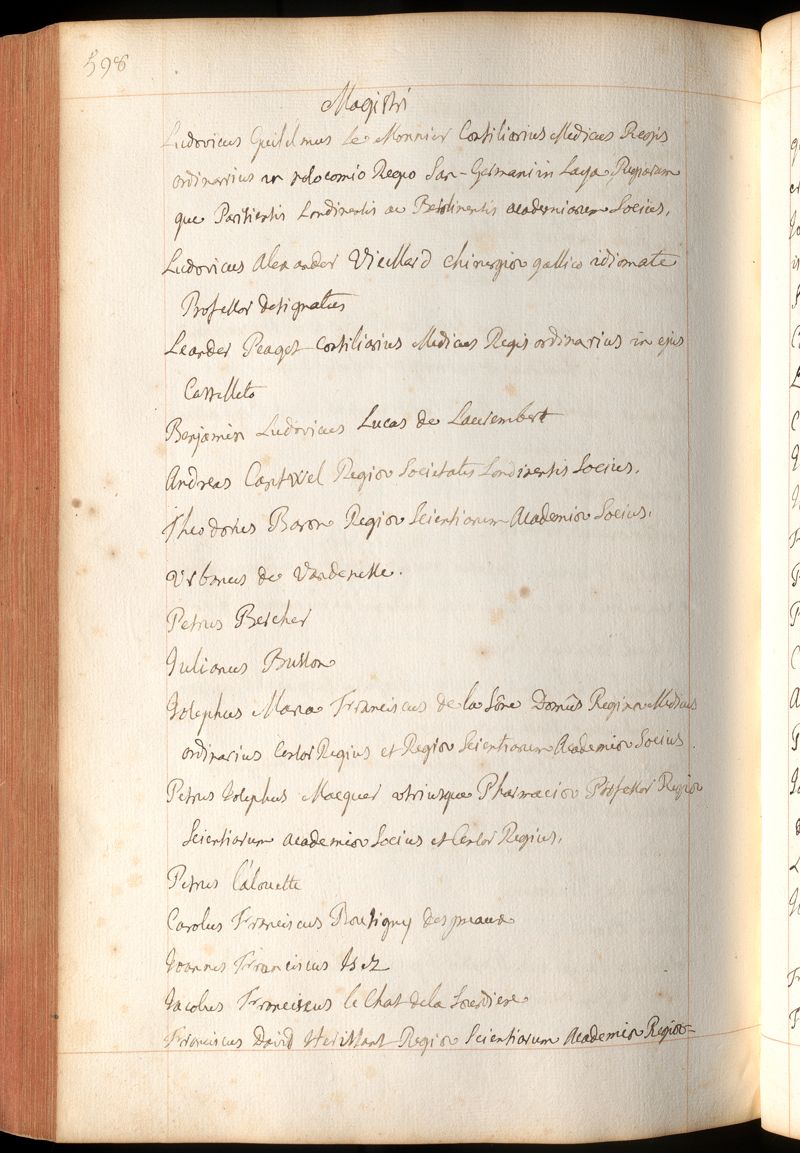 598
Magistri
Ludovicus Guilelmus le Monnier Consiliarius Medicus Regis
ordinarius in nosocomio Regio San-Germani in Laya, Regiarum
que Parisiensis Londinensis ac Berolinensis academiarum Socius.
Ludovicus Alexander Vieillard chirurgiæ gallico idiomate
Professor designatus
Leander Peaget Consiliarius Medicus Regis ordinarius in ejus
Castelleto
Benjamin Ludovicus Lucas de Laurembert
Andreas Cantwel Regiæ Societatis Londinensis Socius.
Theodorus Baron Regiæ Scientiarum Academiæ Socius.
Urbanus de Vandenesse.
Petrus Bercher
Julianus Busson
Josephus Maria Franciscus de la Sône Domûs Reginæ Medicus
ordinarius Censor Regius et Regiæ Scientiarum Academiæ Socius.
Petrus Josephus Macquer utriusque Pharmaciæ Professor Regiæ
Scientiarum academiæ Socius et Censor Regius.
Petrus Calouette
Carolus Franciscus Boutigny despreaux
Joannes Franciscus Isez
Jacobus Franciscus le Chat de la Sourdiere
Franciscus David Herissant Regiæ Scientiarum Academiæ Regiæ-